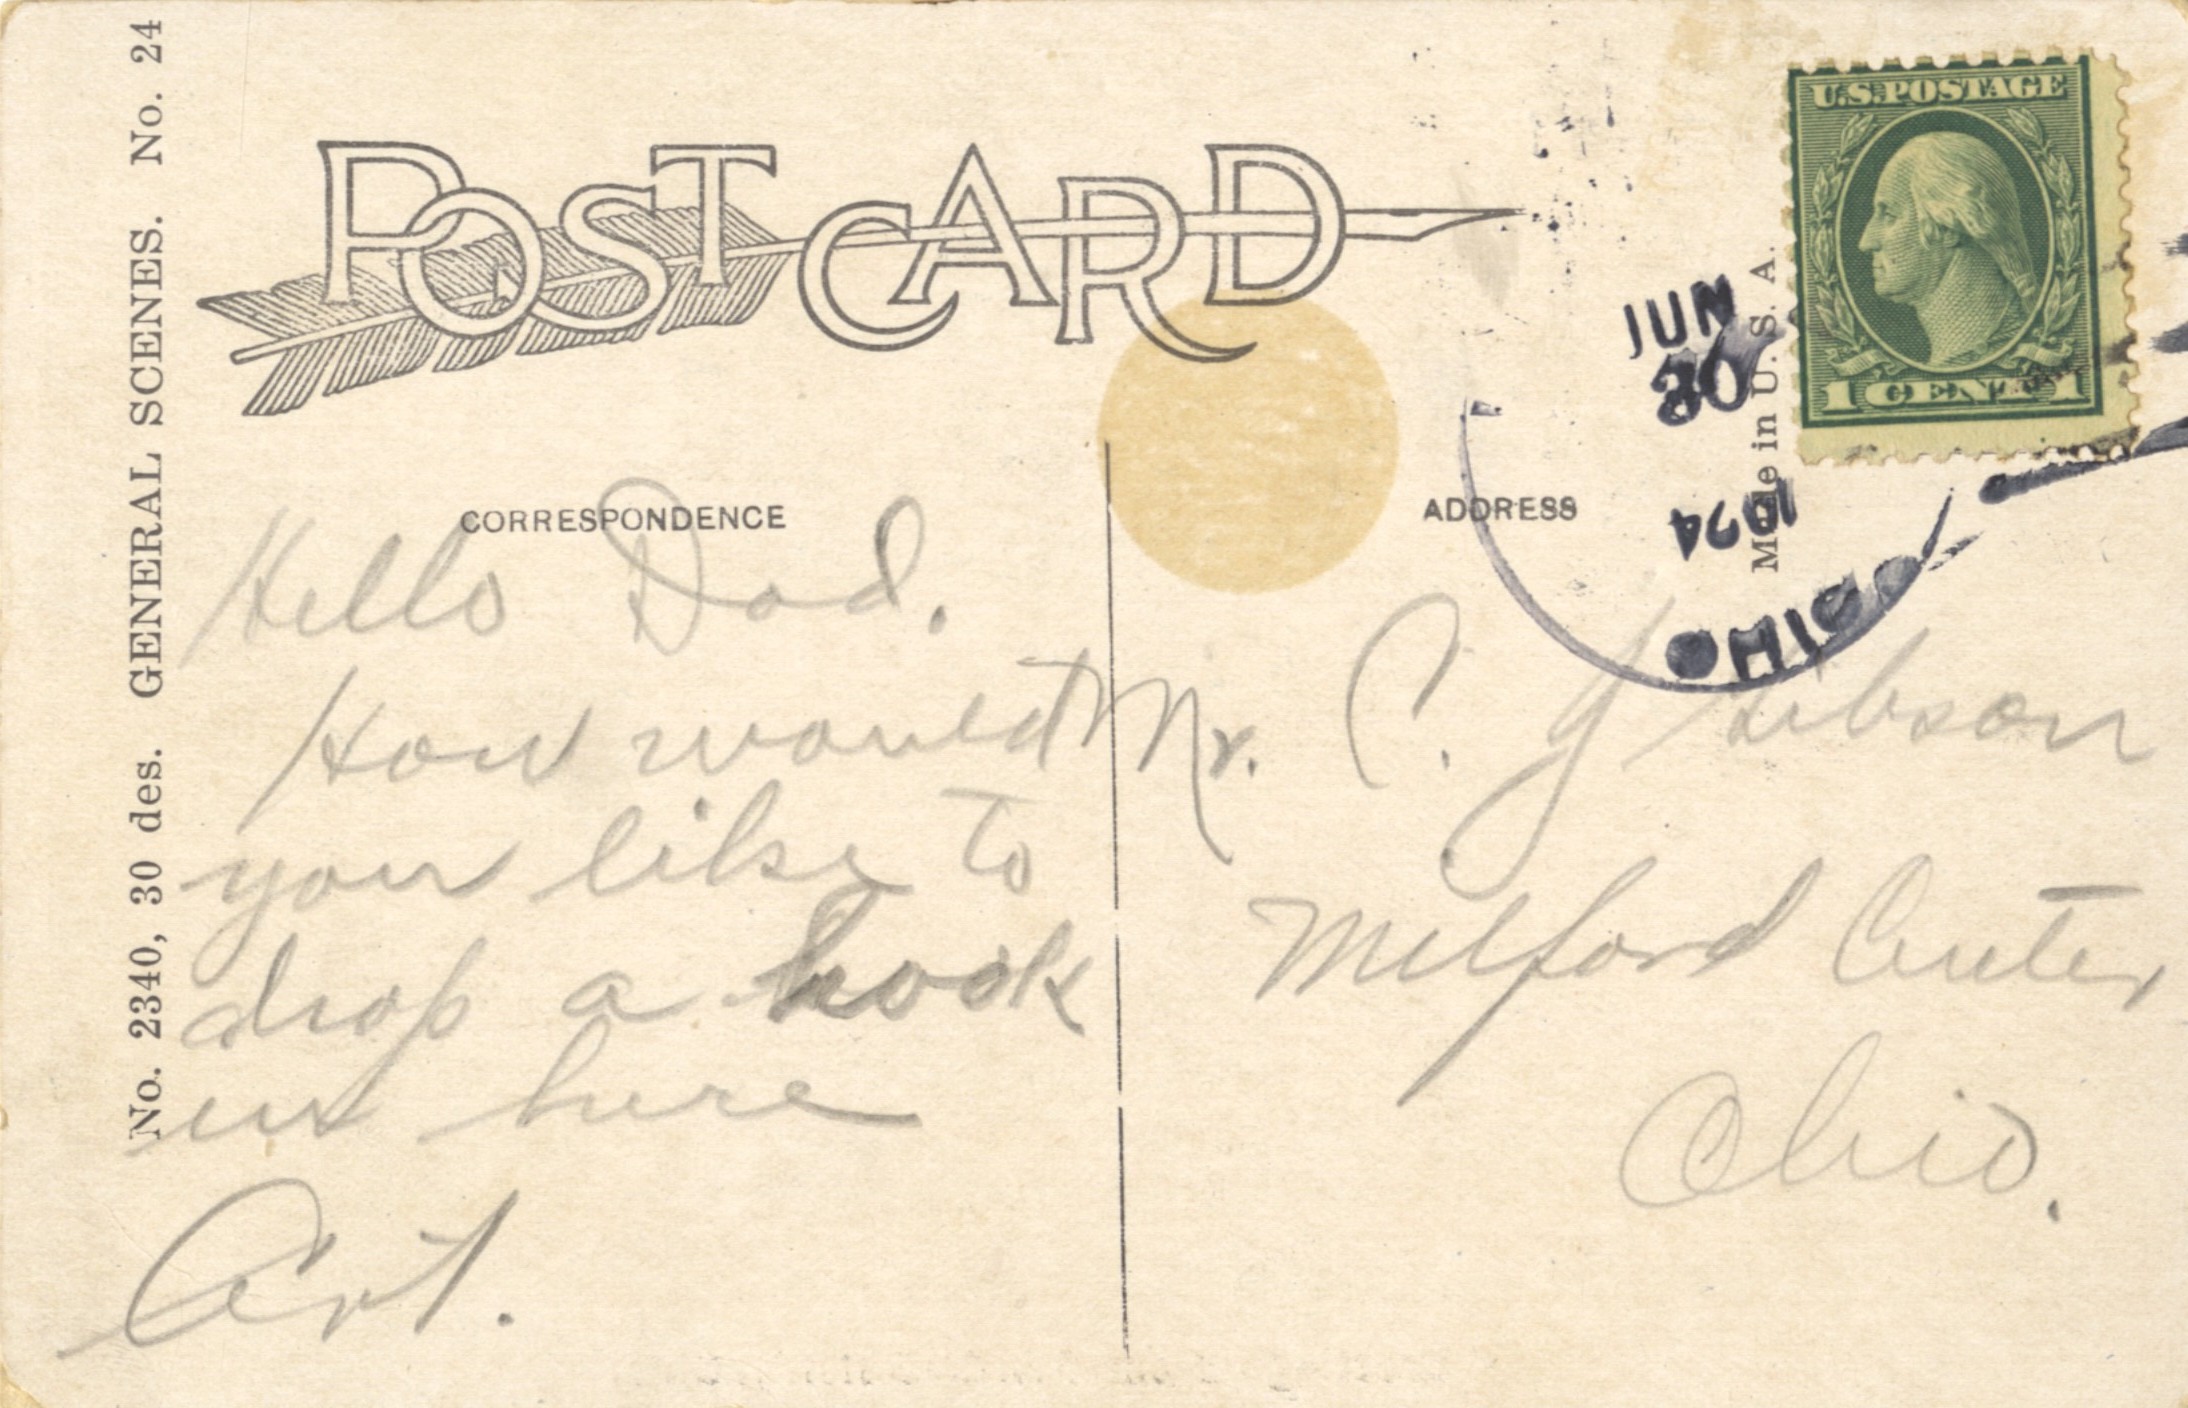 No. 2340, 30 des. GENERAL SCENES. No. 24
POST CARD
U.S. POSTAGE
1 CENT 1
Made in U. S. A.
JUN
30
OHIO
CORRESPONDENCE
ADDRESS
Hello Dad.
How would
you like to
drop a hook
in here
Art.
Mr. C. Gibson
Milford Center
Ohio.